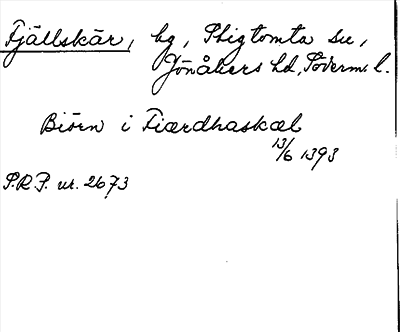 Fjällskär, hg, Stigtomta sn,
Jönåkers hd, Söderm. l.
Biörn i Fiærdhaskæl
13/6 1393
S.R.P. nr. 2673